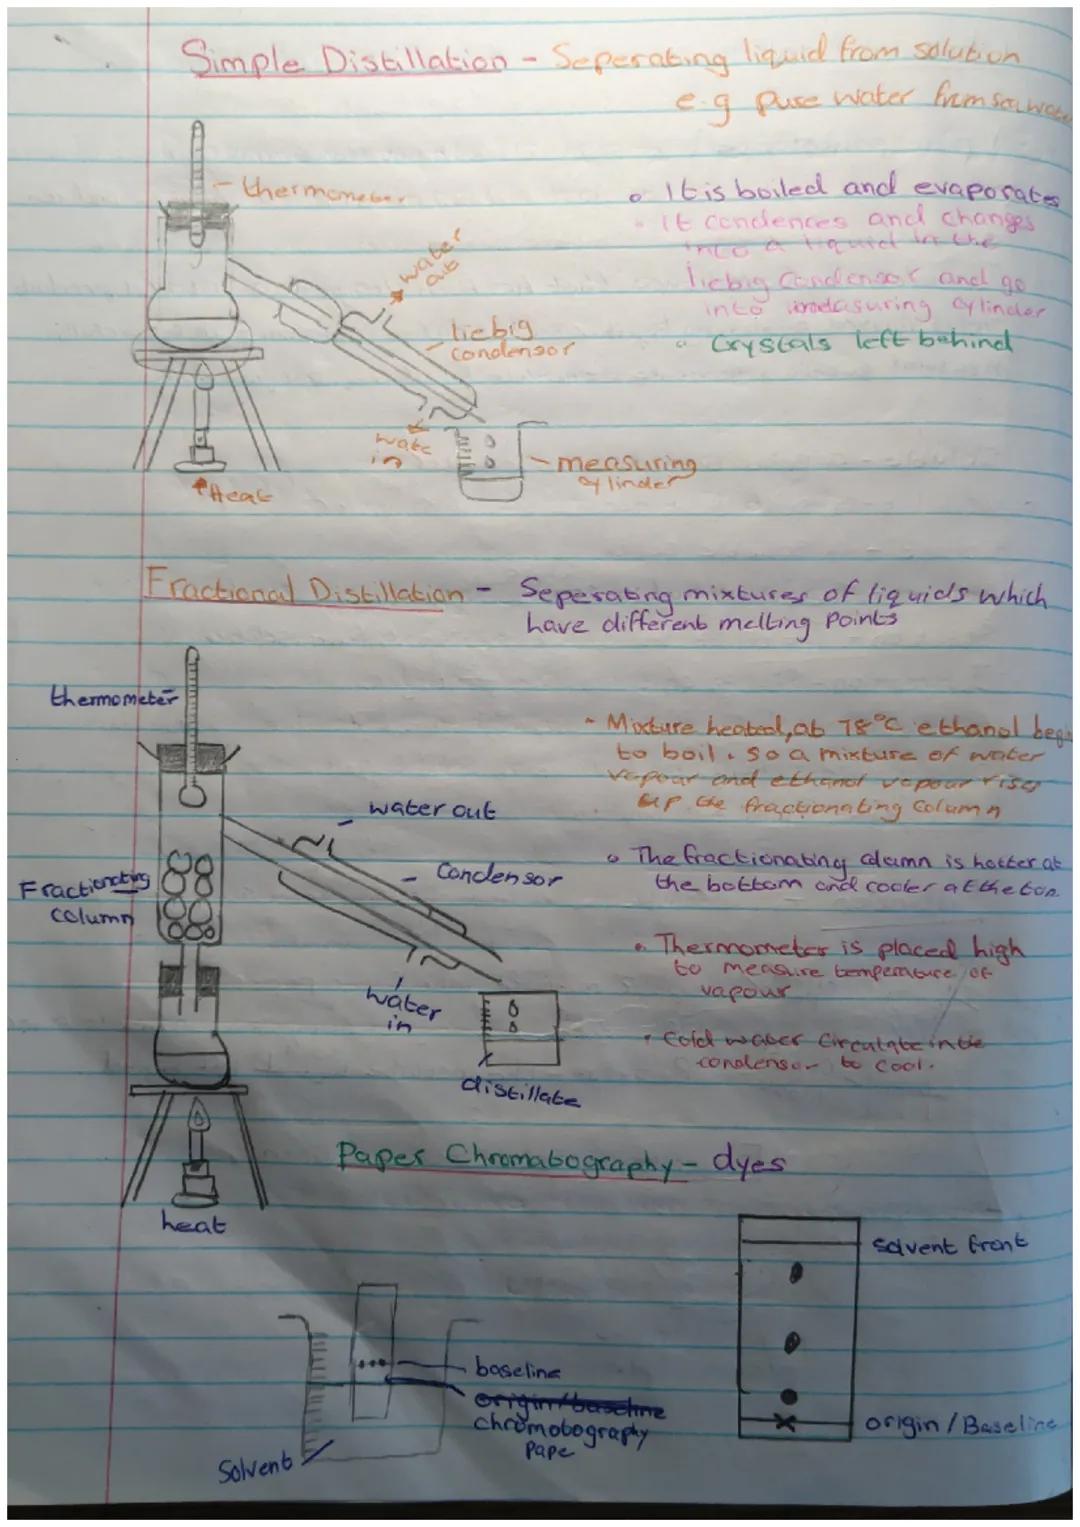 Simple Distillation - Seperating liquid from solution
e.g pure water from sea water
thermometer
water
out
liebig
condensor
water
in
measuring
cylinder
Heat
• It is boiled and evaporates
• It condences and changes
into a liquid in the
liebig Condensor and go
into measuring cylinder
• Crystals left behind
Fractional Distillation - Seperating mixtures of liquids which
have different melting points
thermometer
water out
Condensor
Fractionating
column
water
in
distillate
heat
- Mixture heated, at 78°C ethanol begi
to boil. so a mixture of water
vapour and ethanol vapour rises
up the fractionating column
• The fractionating column is hotter at
the bottom and cooler at the top.
• Thermometer is placed high
to measure temperature of
vapour
• Cold water circulate in the
condensor to cool.
Paper Chromatography - dyes
baseline
origin/baseline
chromotography
pape
Solvent
solvent front
origin / Baseline